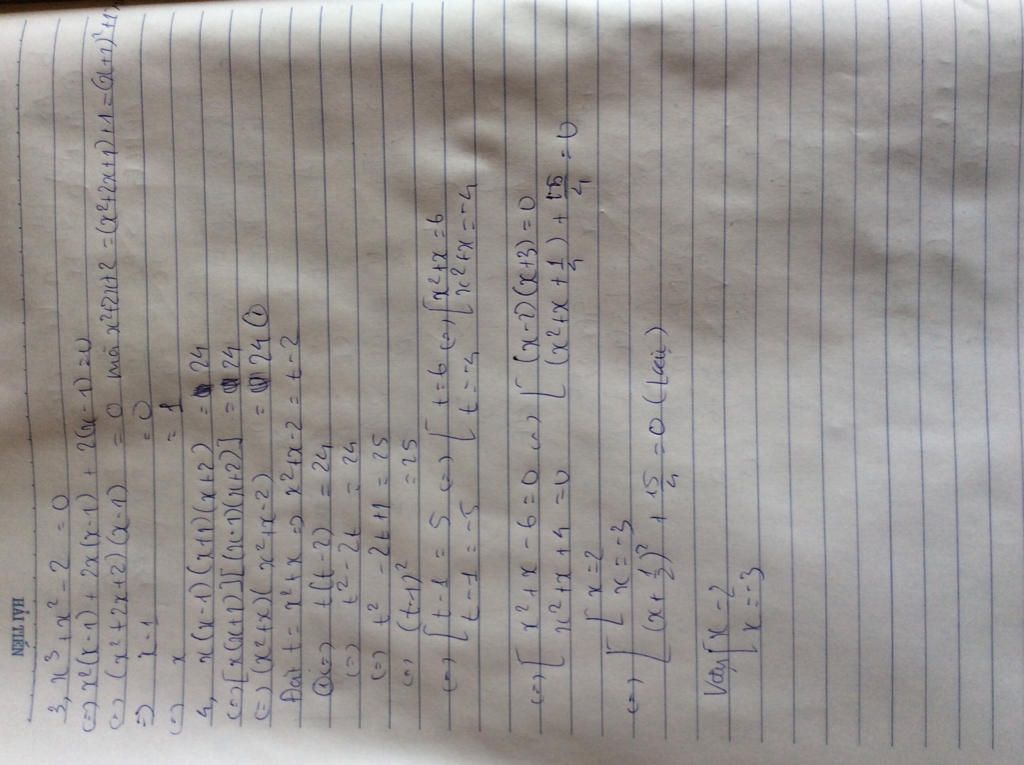 HẢI TIẾN
3, x³ + x² - 2 = 0
(=) x²(x-1) + 2x(x-1) + 2(x-1) = 0
(=) (x²+2x+2)(x-1) = 0 mà x²+2x+2 = (x²+2x+1)+1 = (x+1)²+1
=) x-1 = 0
(=) x = 1
4, x(x-1)(x+1)(x+2) = 24
(=) [x(x+1)][(x-1)(x+2)] = 24
(=) (x²+x)(x²+x-2) = 24 ①
Đặt t = x²+x => x²+x-2 = t-2
①(=) t(t-2) = 24
(=) t² - 2t = 24
(=) t² - 2t + 1 = 25
(=) (t-1)² = 25
(=) [ t-1 = 5 (=) [ t = 6 (=) [ x²+x = 6
t-1 = -5 t = -4 x²+x = -4
(=) [ x²+x-6 = 0 (=) [ (x-2)(x+3) = 0
x²+x+4 = 0 (x²+x+1/4) + 15/4 = 0
(=) [ [ x = 2
x = -3
(x+1/2)² + 15/4 = 0 (loại)
Vậy [ x = 2
x = -3